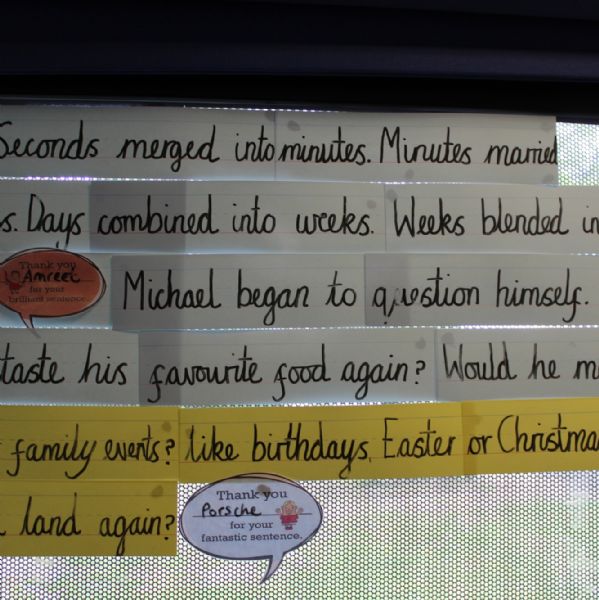 Seconds merged into minutes. Minutes married
s. Days combined into weeks. Weeks blended in
Thank you
Amreet
for your
brilliant sentence.
Michael began to question himself.
taste his favourite food again? Would he m
family events? like birthdays, Easter or Christma
land again?
Thank you
Porsche
for your
fantastic sentence.